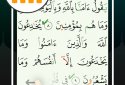 يَقُولُ ءَامَنَّا بِٱللَّهِ وَبِٱلْيَوْمِ
وَمَا هُم بِمُؤْمِنِينَ ٨ يُخَٰدِعُونَ
ٱللَّهَ وَٱلَّذِينَ ءَامَنُوا۟ وَمَا
يَخْدَعُونَ إِلَّآ
يَشْعُرُونَ ٩